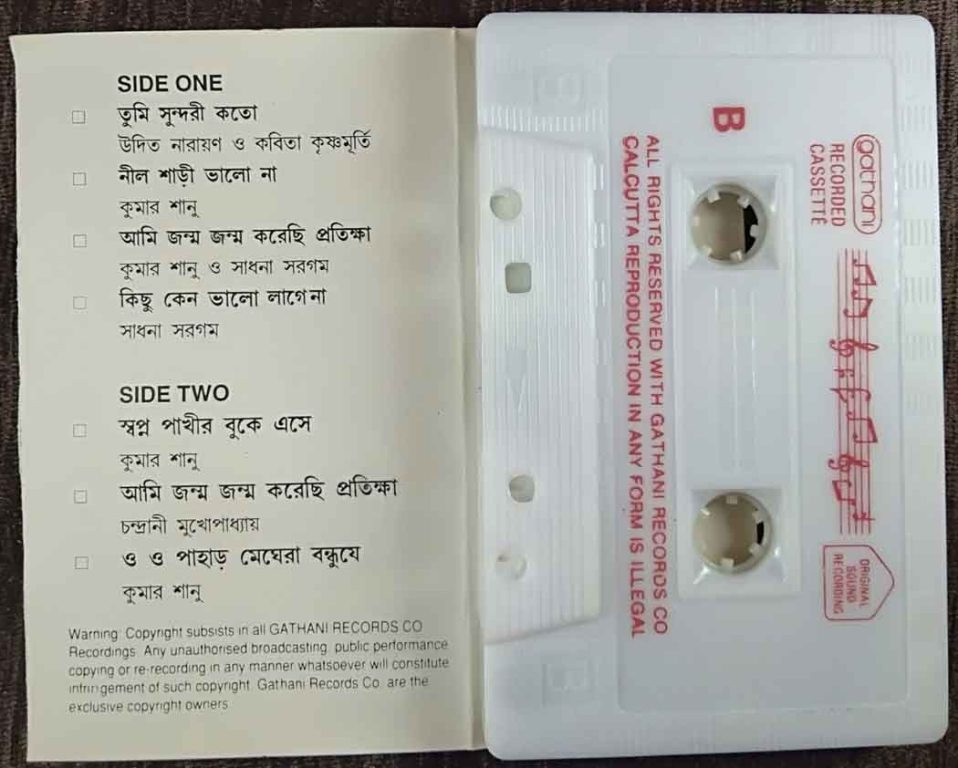 SIDE ONE
তুমি সুন্দরী কতো
উদিত নারায়ণ ও কবিতা কৃষ্ণমূর্তি
নীল শাড়ী ভালো না
কুমার শানু
আমি জন্ম জন্ম করেছি প্রতিক্ষা
কুমার শানু ও সাধনা সরগম
কিছু কেন ভালো লাগেনা
সাধনা সরগম
SIDE TWO
স্বপ্ন পাখীর বুকে এসে
কুমার শানু
আমি জন্ম জন্ম করেছি প্রতিক্ষা
চন্দ্রানী মুখোপাধ্যায়
ও ও পাহাড় মেঘেরা বন্ধুযে
কুমার শানু
Warning: Copyright subsists in all GATHANI RECORDS CO
Recordings. Any unauthorised broadcasting. public performance
copying or re-recording in any manner whatsoever will constitute
infringement of such copyright. Gathani Records Co. are the
exclusive copyright owners
B
gathani
RECORDED
CASSETTE
ALL RIGHTS RESERVED WITH GATHANI RECORDS CO
CALCUTTA REPRODUCTION IN ANY FORM IS ILLEGAL
ORIGINAL
SOUND
RECORDING